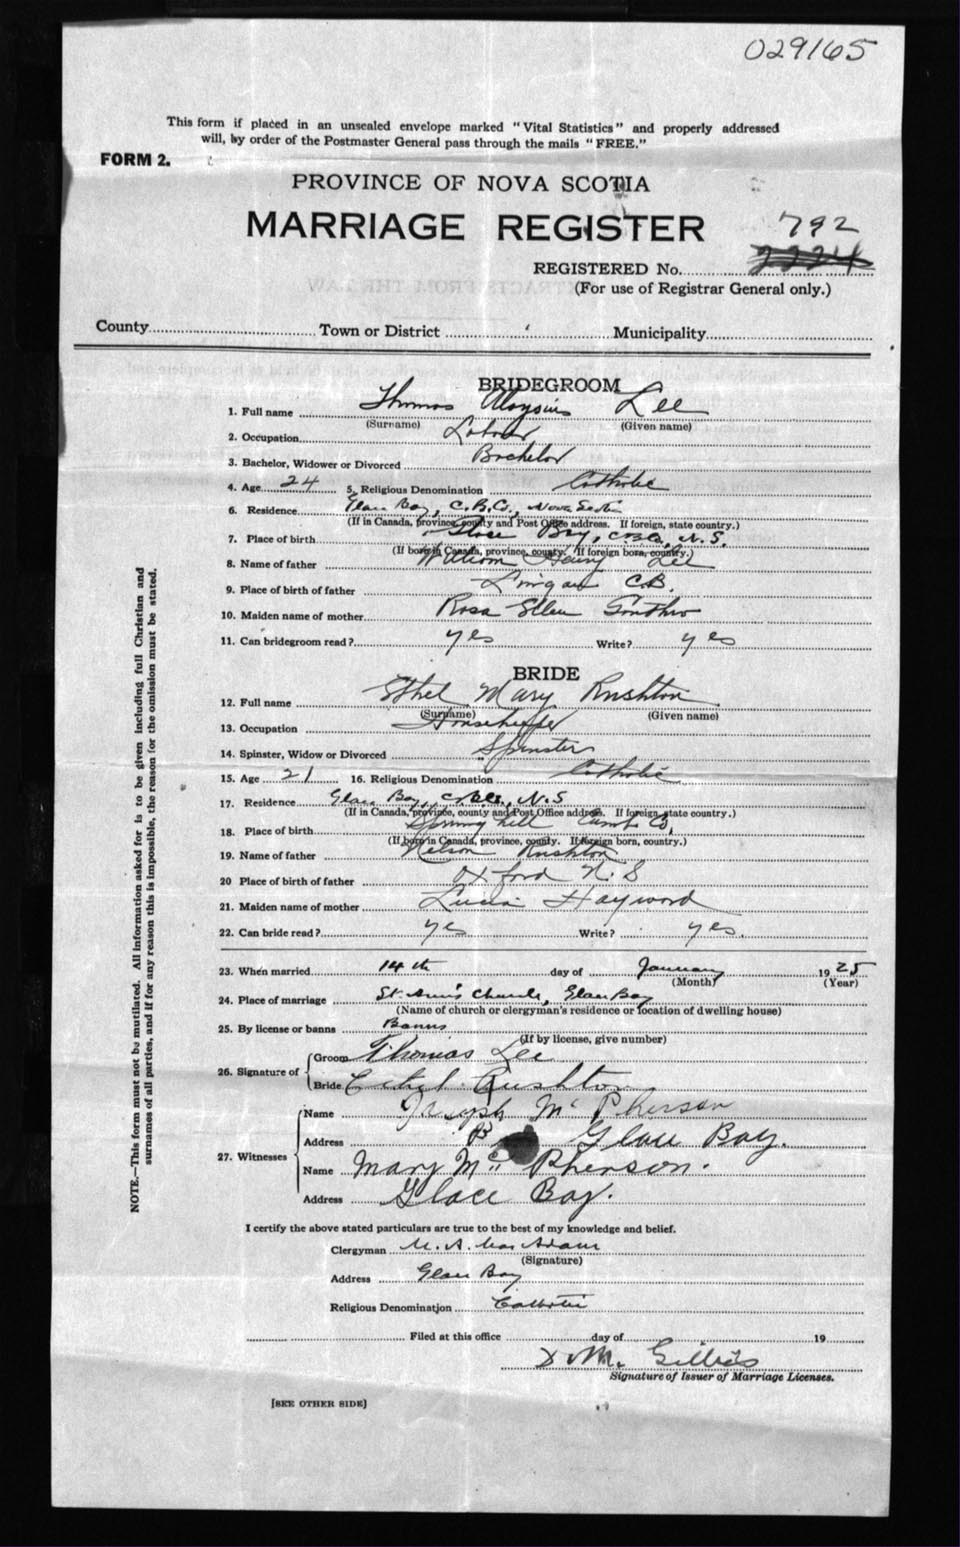 029165
This form if placed in an unsealed envelope marked "Vital Statistics" and properly addressed
will, by order of the Postmaster General pass through the mails "FREE."
FORM 2.
PROVINCE OF NOVA SCOTIA
MARRIAGE REGISTER
792
REGISTERED No. 2224
(For use of Registrar General only.)
County Town or District Municipality
BRIDEGROOM
1. Full name Thomas Aloysius Lee
(Surname) (Given name)
2. Occupation Laborer
3. Bachelor, Widower or Divorced Bachelor
4. Age 24 5. Religious Denomination Catholic
6. Residence Glace Bay, C.B.Co., Nova Scotia
(If in Canada, province, county and Post Office address. If foreign, state country.)
7. Place of birth Glace Bay, C.B.Co, N.S.
(If born in Canada, province, county. If foreign born, country.)
8. Name of father William Henry Lee
9. Place of birth of father Lingan C.B.
10. Maiden name of mother Rosa Ellen
11. Can bridegroom read? yes Write? yes
BRIDE
12. Full name Ethel Mary Rushton
(Surname) (Given name)
13. Occupation Housekeeper
14. Spinster, Widow or Divorced Spinster
15. Age 21 16. Religious Denomination Catholic
17. Residence Glace Bay, C.B.Co., N.S
(If in Canada, province, county and Post Office address. If foreign, state country.)
18. Place of birth Springhill Cumb. Co,
(If born in Canada, province, county. If foreign born, country.)
19. Name of father Nelson Rushton
20 Place of birth of father Oxford N.S
21. Maiden name of mother Hayword
22. Can bride read? yes Write? yes.
23. When married 14th day of January 1925
(Month) (Year)
24. Place of marriage St Ann's Church, Glace Bay
(Name of church or clergyman's residence or location of dwelling house)
25. By license or banns Banns
(If by license, give number)
26. Signature of Groom Thomas Lee
Bride Ethel Rushton
27. Witnesses
Name Joseph McPherson
Address B Glace Bay.
Name Mary McPherson.
Address Glace Bay.
I certify the above stated particulars are true to the best of my knowledge and belief.
Clergyman M. A. MacAdam
(Signature)
Address Glace Bay
Religious Denomination Catholic
Filed at this office day of 19
D M. Gillies
Signature of Issuer of Marriage Licenses.
[SEE OTHER SIDE]
NOTE.—This form must not be mutilated. All information asked for is to be given including full Christian and
surnames of all parties, and if for any reason this is impossible, the reason for the omission must be stated.